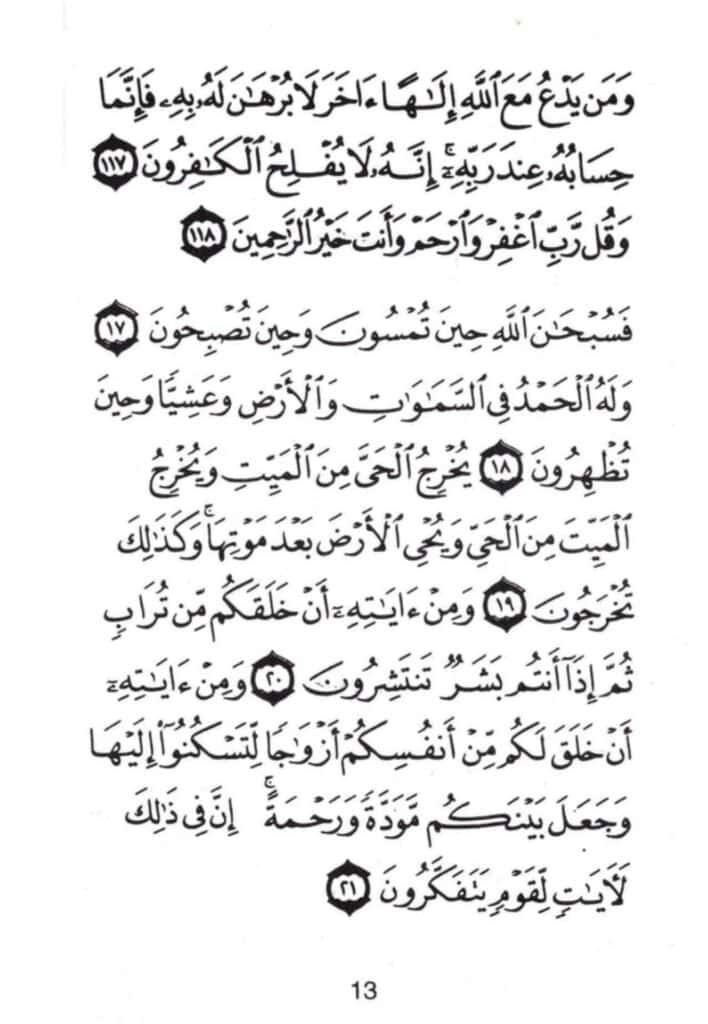 وَمَن يَدْعُ مَعَ ٱللَّهِ إِلَـٰهًا ءَاخَرَ لَا بُرْهَـٰنَ لَهُۥ بِهِۦ فَإِنَّمَا
حِسَابُهُۥ عِندَ رَبِّهِۦٓ ۚ إِنَّهُۥ لَا يُفْلِحُ ٱلْكَـٰفِرُونَ ١١٧
وَقُل رَّبِّ ٱغْفِرْ وَٱرْحَمْ وَأَنتَ خَيْرُ ٱلرَّٰحِمِينَ ١١٨
فَسُبْحَـٰنَ ٱللَّهِ حِينَ تُمْسُونَ وَحِينَ تُصْبِحُونَ ١٧
وَلَهُ ٱلْحَمْدُ فِى ٱلسَّمَـٰوَٰتِ وَٱلْأَرْضِ وَعَشِيًّا وَحِينَ
تُظْهِرُونَ ١٨ يُخْرِجُ ٱلْحَىَّ مِنَ ٱلْمَيِّتِ وَيُخْرِجُ
ٱلْمَيِّتَ مِنَ ٱلْحَىِّ وَيُحْىِ ٱلْأَرْضَ بَعْدَ مَوْتِهَا ۚ وَكَذَٰلِكَ
تُخْرَجُونَ ١٩ وَمِنْ ءَايَـٰتِهِۦٓ أَنْ خَلَقَكُم مِّن تُرَابٍ
ثُمَّ إِذَآ أَنتُم بَشَرٌ تَنتَشِرُونَ ٢٠ وَمِنْ ءَايَـٰتِهِۦٓ
أَنْ خَلَقَ لَكُم مِّنْ أَنفُسِكُمْ أَزْوَٰجًا لِّتَسْكُنُوٓا۟ إِلَيْهَا
وَجَعَلَ بَيْنَكُم مَّوَدَّةً وَرَحْمَةً ۚ إِنَّ فِى ذَٰلِكَ
لَـَٔايَـٰتٍ لِّقَوْمٍ يَتَفَكَّرُونَ ٢١
13